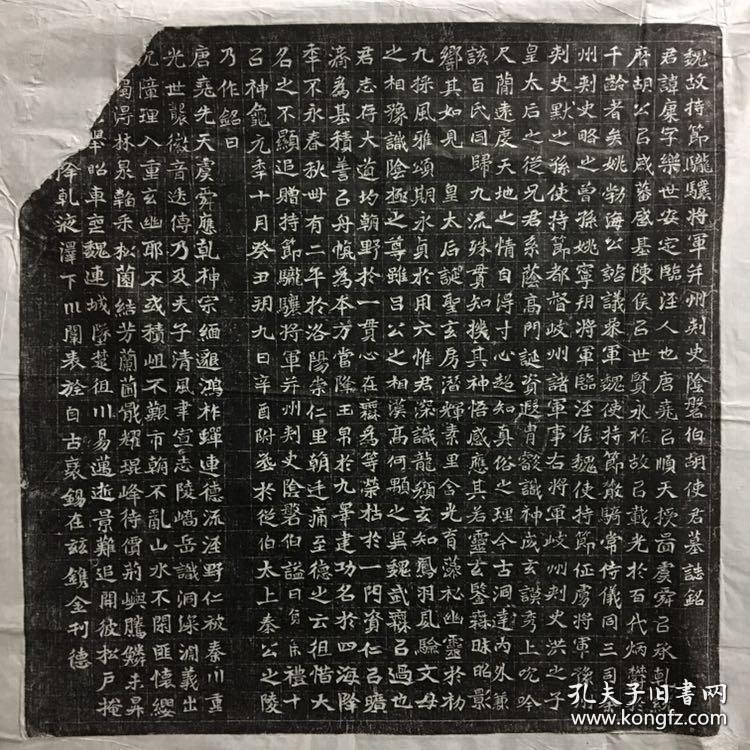 魏故持節驪驤將軍并州刾史陰磐伯胡使君墓誌銘
君諱康字樂世安定臨涇人也唐堯㠯順天授啚虞舜㠯承乹
磨胡公㠯咸蕃盛基陳侯㠯世賢永祚故㠯載光於百代炳
千齡者矣姚勃海公諮議叅軍魏使持節散騎常侍儀同三司
州刾史略之曾孫姚寧朔將軍臨涇侯魏使持節征虜將軍
刾史默之孫使持節都督岐州諸軍事右將軍岐州刾史洪之子
皇太后之從兄君系蔭高門誕資遐胄叡識神成玄謨秀上吮吟
尺蘭遠度天地之情自得寸心超知真俗之理今古洞達內外兼
該百氏同歸九流殊貫知機其神悟感應其若靈玄鑒森昧昭景
響其如見　皇太后誕聖玄房潛輝素里含光育藻松幽靈於初
九採風雅頌期永貞於用六惟君深識龍顏玄知鳳羽風驗文母
之相豫識陰極之尊雖呂公之相漢高何顒之異魏武蔑㠯過也
君志存大道均朝野於一貫心在齋爲等榮枯於一門資仁㠯曠
濟爲基積善㠯舟慨爲本方當降王帛於九睪建功名於四海降
秊不永春秋丗有二年於洛陽崇仁里朝廷痛至德之云徂惜大
名之不顯追贈持節驪驤將軍并州刾史陰磐伯謚曰 禮十
㠯神龜元秊十月癸丑玥九日辛酉附葬於從伯太上秦公之陵
乃作銘曰
唐堯先天虞舜應乹神宗緬邈鴻柞蟬連德流涇野仁被秦川重
光世襲徽音迭傳乃及夫子清風聿宣志陵嶠岳識洞深淵義出
㡬隴理入重玄幽耶不或積岨不艱市朝不亂山水不閑匪懷纓
得林泉韜乘松菌結芳蘭茵戢耀琨峰待價荊嶼騰鱗未昇
舉昭車壺魏連城墜楚徂川易邁逝景難追開彼松戶掩
降乹液澤下川闡表於自古襃錫在兹鐫金刊德
孔夫子旧书网
www.kongfz.com